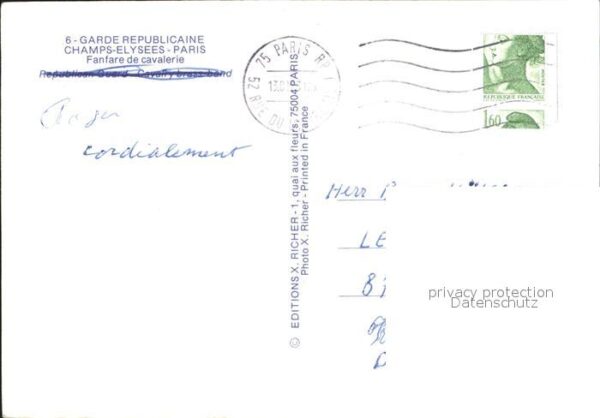 6 - GARDE REPUBLICAINE
CHAMPS-ELYSEES - PARIS
Fanfare de cavalerie
Republican Guard - Cavalry brass band
Roger
cordialement
© EDITIONS X. RICHER - 1, quai aux fleurs, 75004 PARIS
Photo X. Richer - Printed in France
75 PARIS RP
52 RUE DU
REPUBLIQUE FRANÇAISE
1,60
Herr
LE
B
privacy protection
Datenschutz